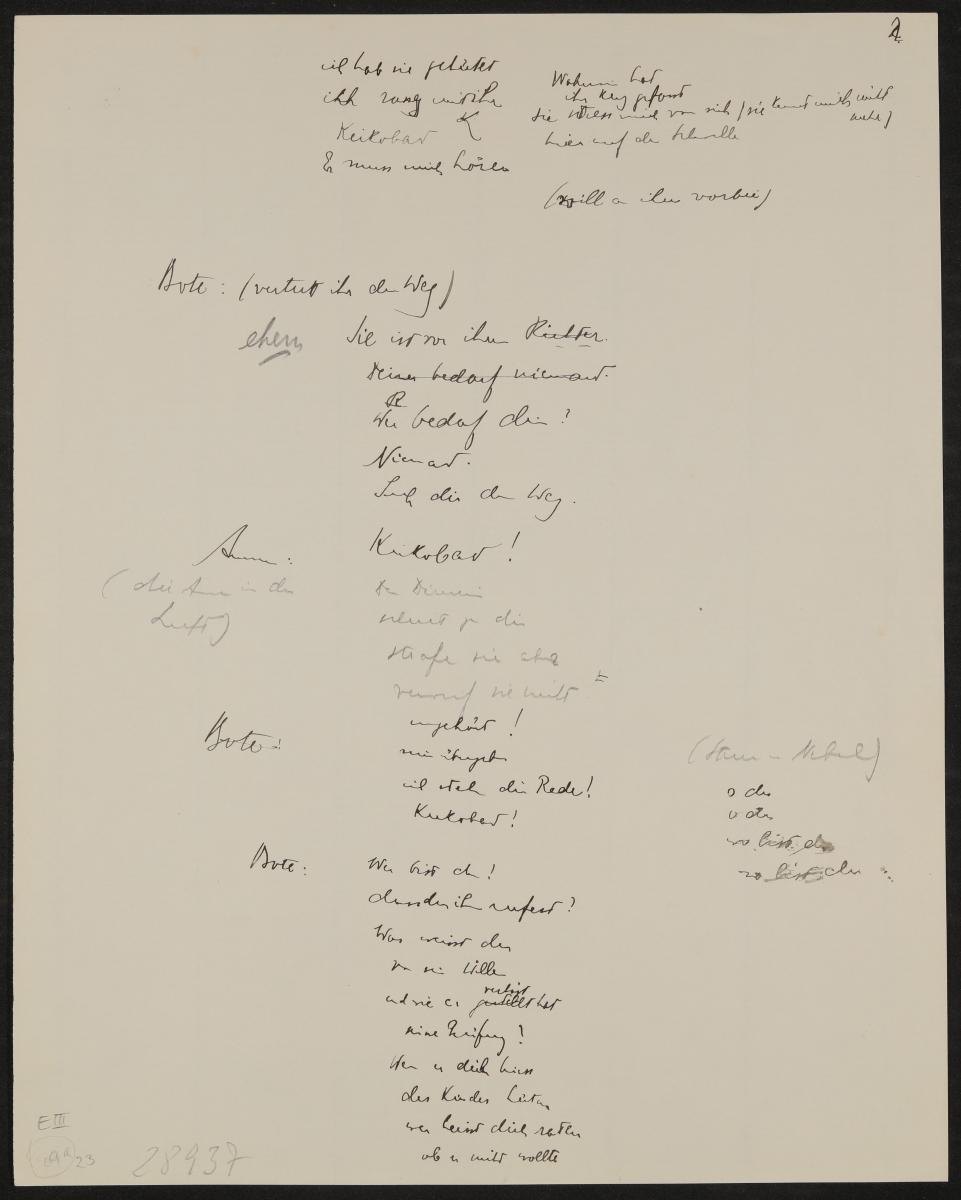 2
ich hab sie gehütet
ich rang mit ihr
Keikobad
Er muss mich hören
Wahnsinn hat
ihr Herz gefasst
sie stiess mich von sich (sie kennt mich nicht
mehr)
hier auf der Schwelle
(will an ihm vorbei)
Bote: (vertritt ihr den Weg)
ehern
Sie ist vor ihrem Richter.
Deiner bedarf niemand.
Wer bedarf dein?
Niemand.
Such dir den Weg.
Amme: Keikobad!
(die Arme in der
Luft)
Die Dienerin
schreit zu dir
strafe sie aber
verwirf sie nicht
Bote:
ungehört!
mir übergeben
ich steh dir Rede!
Keikobad!
(Stimmen im Nebel)
o du
o du
wo bist du
wo bist du
Bote: Wer bist du!
dass du ihn rufest?
Was weisst du
von seinem Willen
und wie er verhängt hat
seine Prüfung?
Wenn er dich hiess
des Kindes hüten
wer heisst dich raten
ob er nicht wollte
E III
23
28937